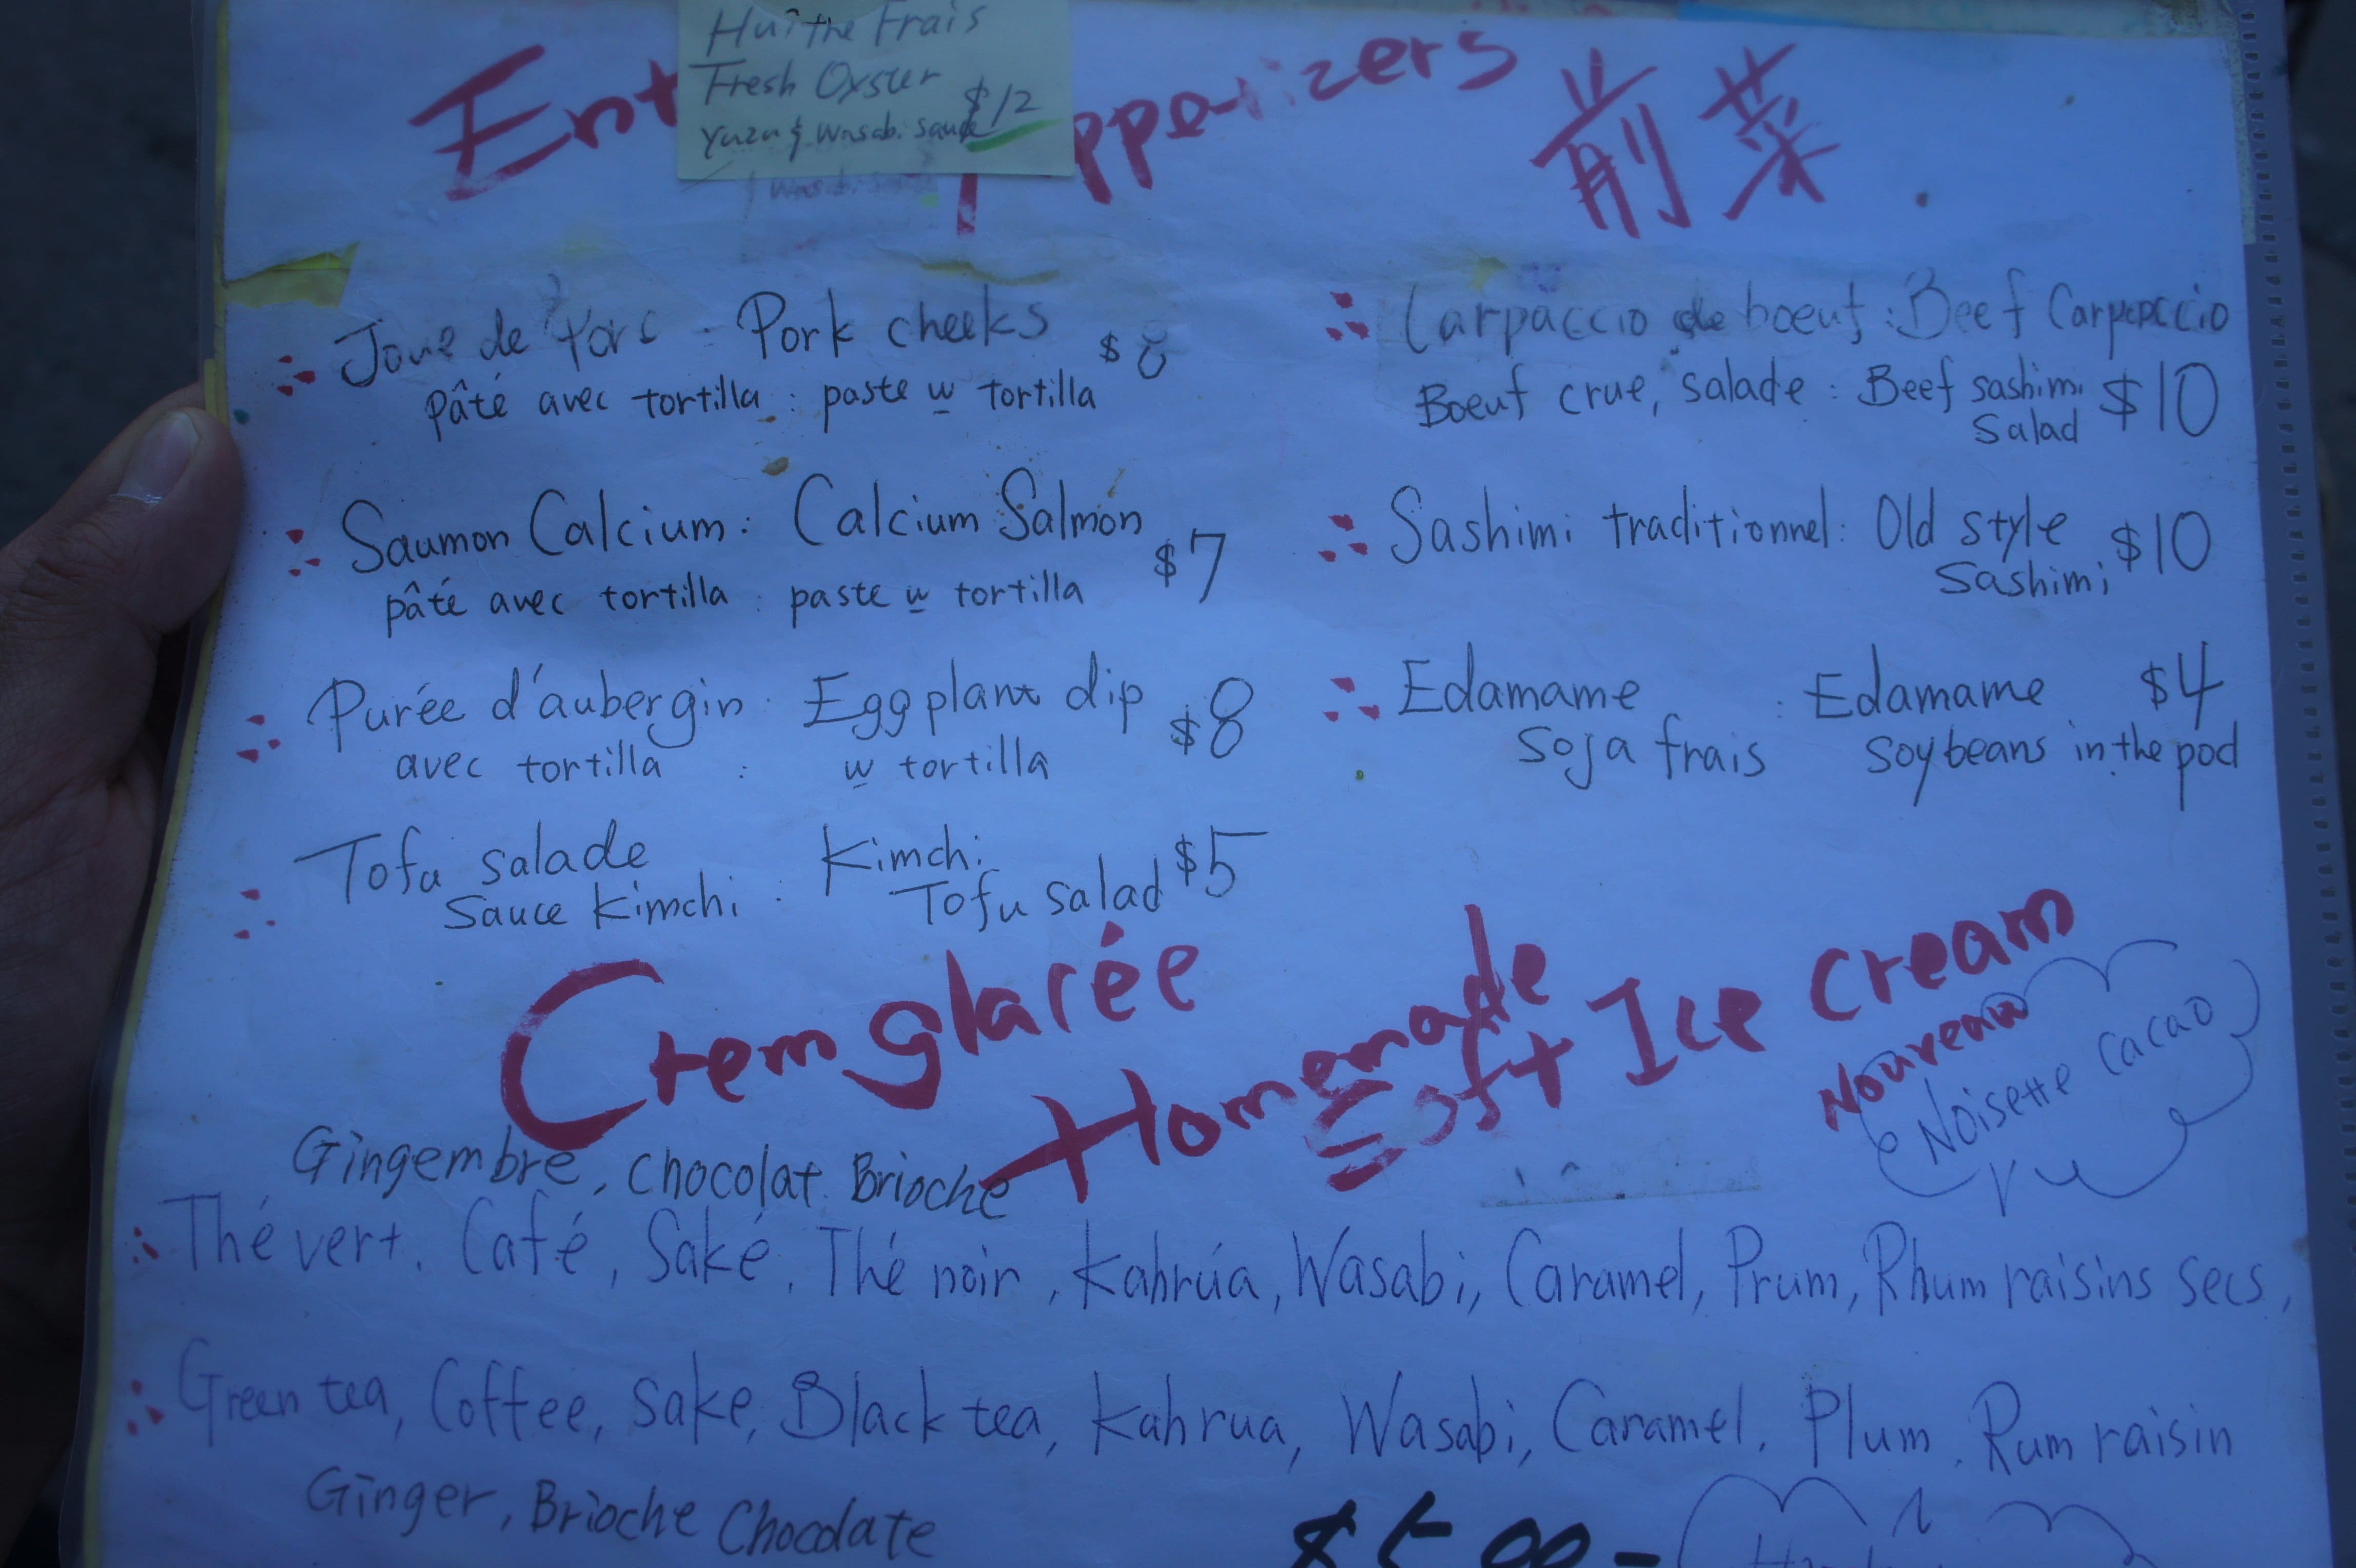 Huître Frais
Fresh Oyster
Yuzu & Wasabi sauce $12
Ent
ppetizers 前菜
Joue de Porc : Pork cheeks $8
pâté avec tortilla : paste w tortilla
Saumon Calcium : Calcium Salmon $7
pâté avec tortilla : paste w tortilla
Purée d'aubergin : Eggplant dip $8
avec tortilla : w tortilla
Tofu salade Kimchi
Sauce Kimchi : Tofu salad $5
Carpaccio de boeuf : Beef Carpaccio
Boeuf crue, salade : Beef sashimi $10
Salad
Sashimi traditionnel : Old style $10
Sashimi
Edamame : Edamame $4
Soja frais Soybeans in the pod
Crem glacée
Homemade
Soft Ice Cream
Nouveau
Noisette Cacao
Gingembre, Chocolat Brioche
Thé vert, Café, Saké, Thé noir, Kahrúa, Wasabi, Caramel, Prum, Rhum raisins secs,
Green tea, Coffee, Sake, Black tea, Kahrua, Wasabi, Caramel, Plum, Rum raisin
Ginger, Brioche Chocolate
$5.00-